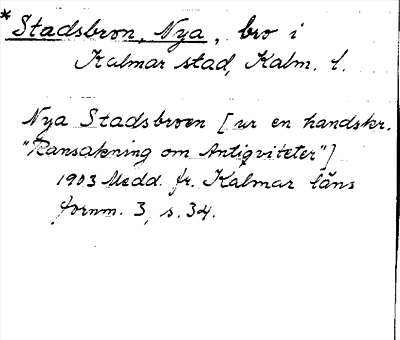 *Stadsbron, Nya, bro i
Kalmar stad, Kalm. l.
Nya Stadsbroen [ur en handskr.
"Ransakning om Antiqviteter"]
1903 Medd. fr. Kalmar läns
fornm. 3, s. 34.